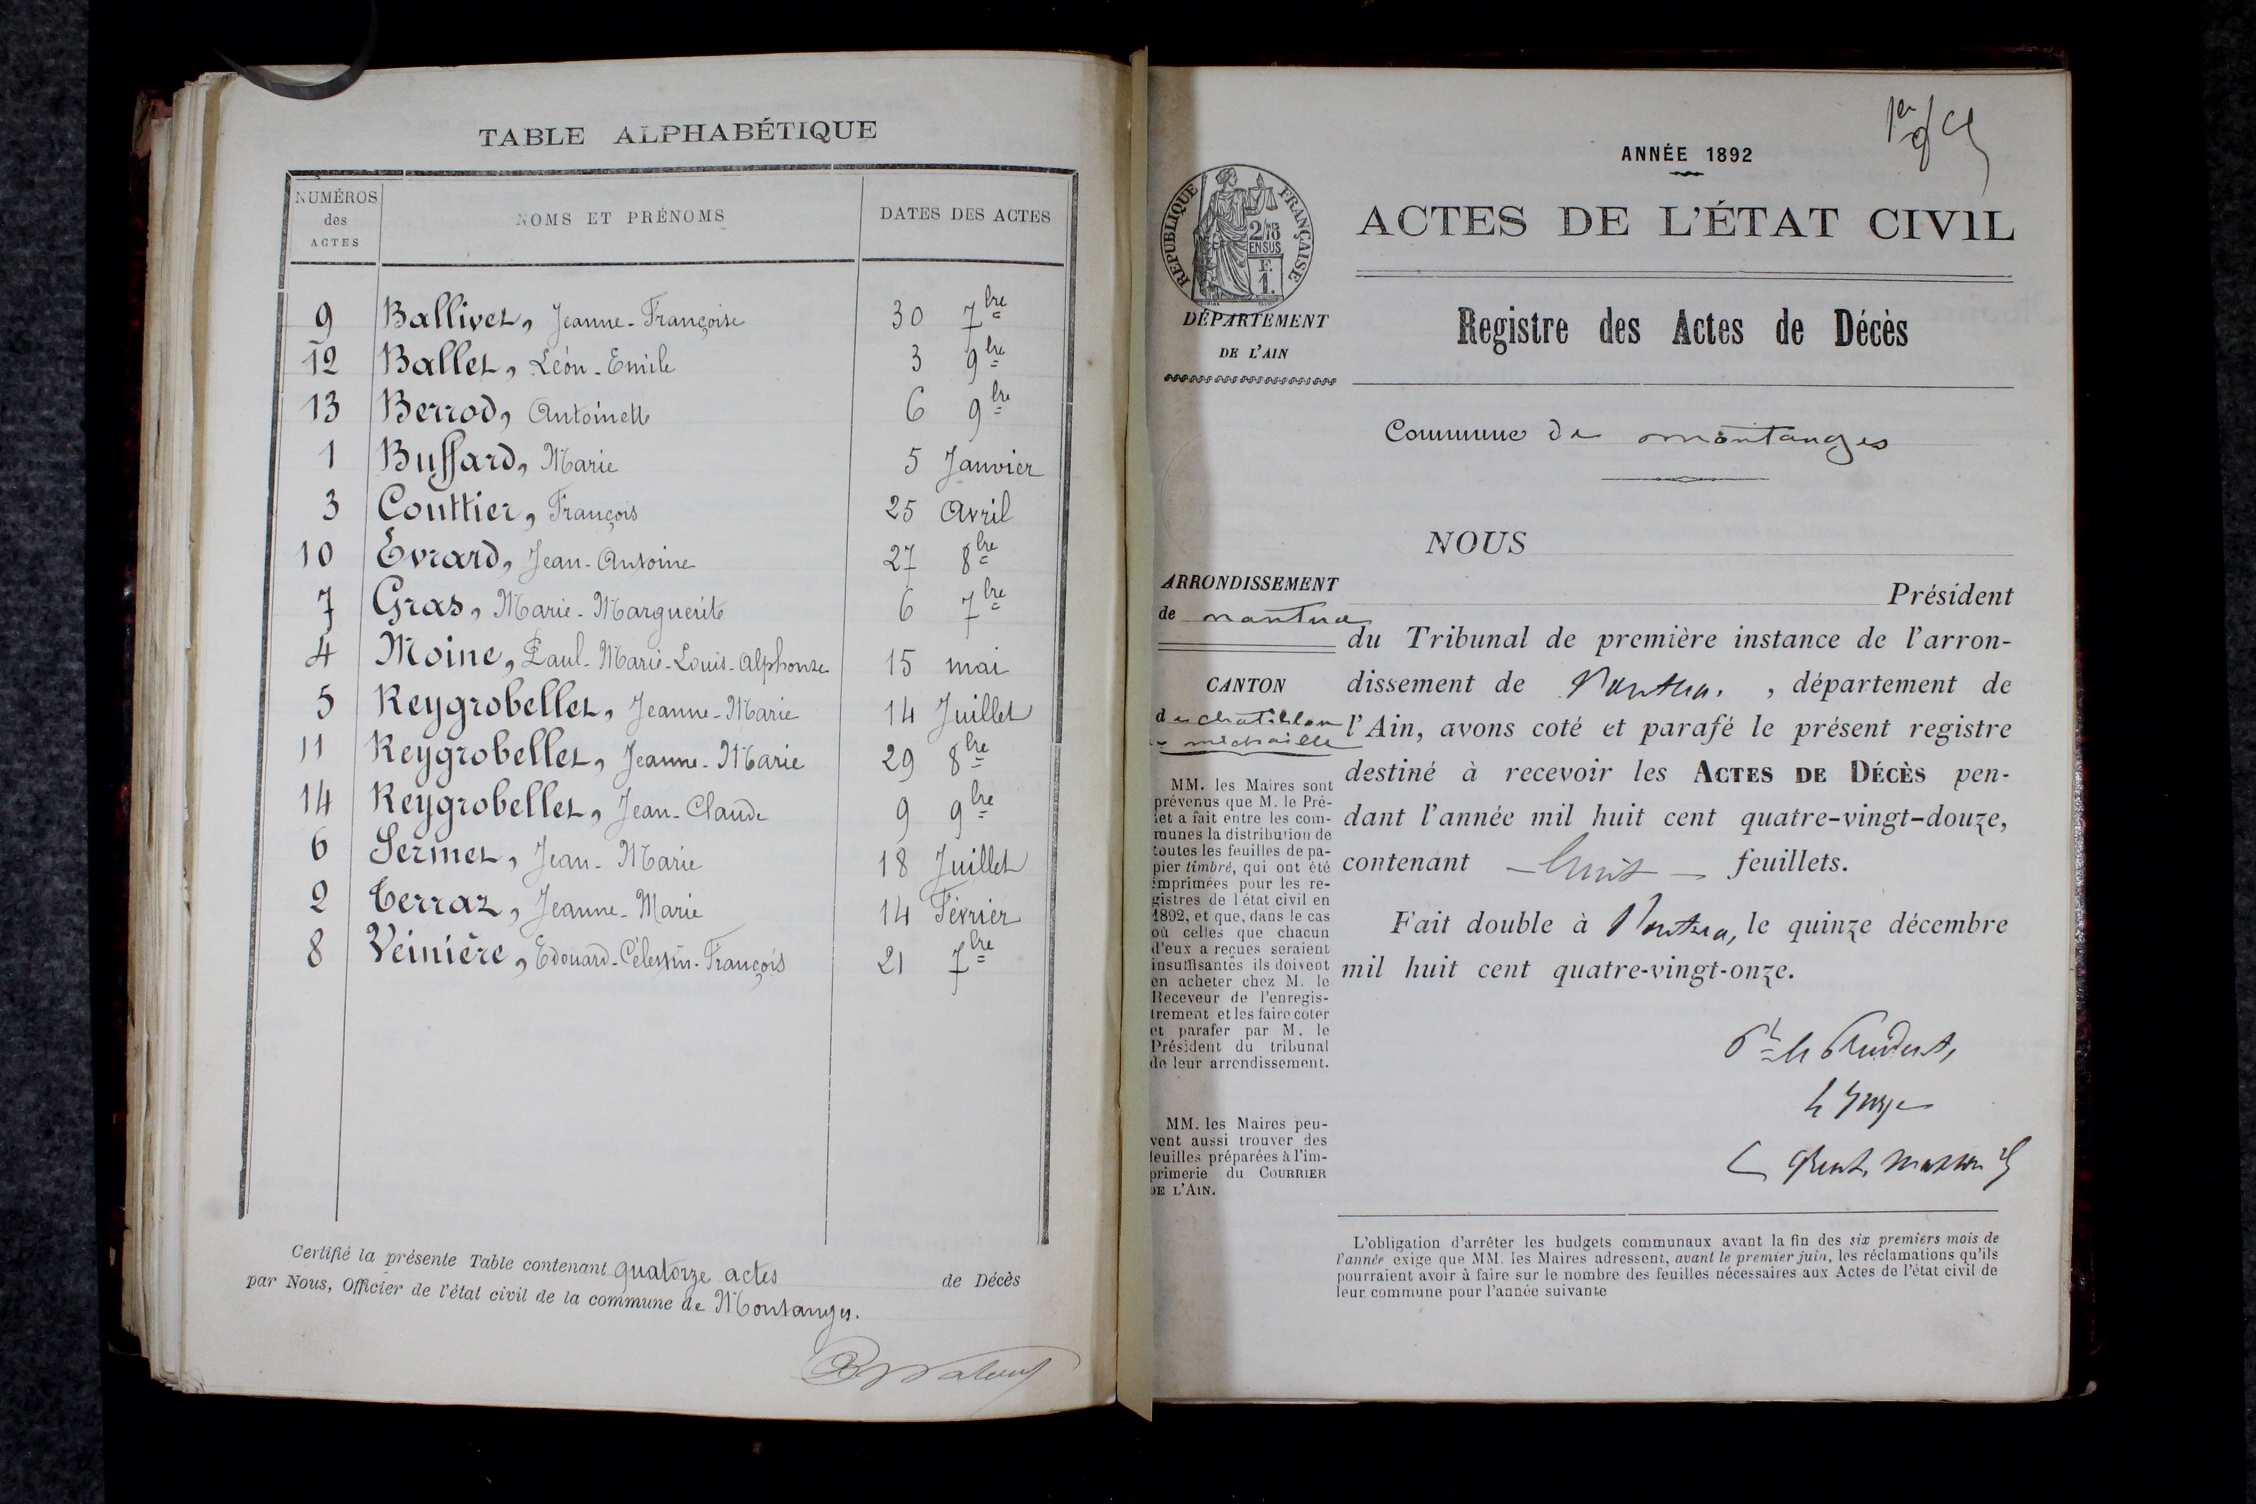 TABLE ALPHABÉTIQUE
NUMÉROS des ACTES NOMS ET PRÉNOMS DATES DES ACTES
9 Ballivet, Jeanne-Françoise 30 7bre
12 Ballet, Léon-Emile 3 9bre
13 Berrod, Antoinette 6 9bre
1 Buffard, Marie 5 Janvier
3 Couttier, François 25 Avril
10 Evrard, Jean-Antoine 27 8bre
7 Gras, Marie-Marguerite 6 7bre
4 Moine, Paul-Marie-Louis-Alphonse 15 mai
5 Reygrobellet, Jeanne-Marie 14 Juillet
11 Reygrobellet, Jeanne-Marie 29 8bre
14 Reygrobellet, Jean-Claude 9 9bre
6 Sermet, Jean-Marie 18 Juillet
2 Terraz, Jeanne-Marie 14 Février
8 Veinière, Edouard-Célestin-François 21 7bre
Certifié la présente Table contenant quatorze actes de Décès
par Nous, Officier de l'état civil de la commune de Montanges.
1er
ANNÉE 1892
ACTES DE L'ÉTAT CIVIL
RÉPUBLIQUE FRANÇAISE
2/10 EN SUS
F. 1.
DÉPARTEMENT
DE L'AIN
Registre des Actes de Décès
Commune de montanges
NOUS
ARRONDISSEMENT
de nantua
CANTON
de chatillon
de michaille
MM. les Maires sont
prévenus que M. le Pré-
fet a fait entre les com-
munes la distribution de
toutes les feuilles de pa-
pier timbré, qui ont été
imprimées pour les re-
gistres de l'état civil en
1892, et que, dans le cas
où celles que chacun
d'eux a reçues seraient
insuffisantes ils doivent
en acheter chez M. le
Receveur de l'enregis-
trement et les faire coter
et parafer par M. le
Président du tribunal
de leur arrondissement.
MM. les Maires peu-
vent aussi trouver des
feuilles préparées à l'im-
primerie du COURRIER
DE L'AIN.
Président
du Tribunal de première instance de l'arron-
dissement de Nantua, département de
l'Ain, avons coté et parafé le présent registre
destiné à recevoir les ACTES DE DÉCÈS pen-
dant l'année mil huit cent quatre-vingt-douze,
contenant - huit - feuillets.
Fait double à Nantua, le quinze décembre
mil huit cent quatre-vingt-onze.
Pr le Président,
le Juge
L'obligation d'arrêter les budgets communaux avant la fin des six premiers mois de
l'année exige que MM. les Maires adressent, avant le premier juin, les réclamations qu'ils
pourraient avoir à faire sur le nombre des feuilles nécessaires aux Actes de l'état civil de
leur commune pour l'année suivante